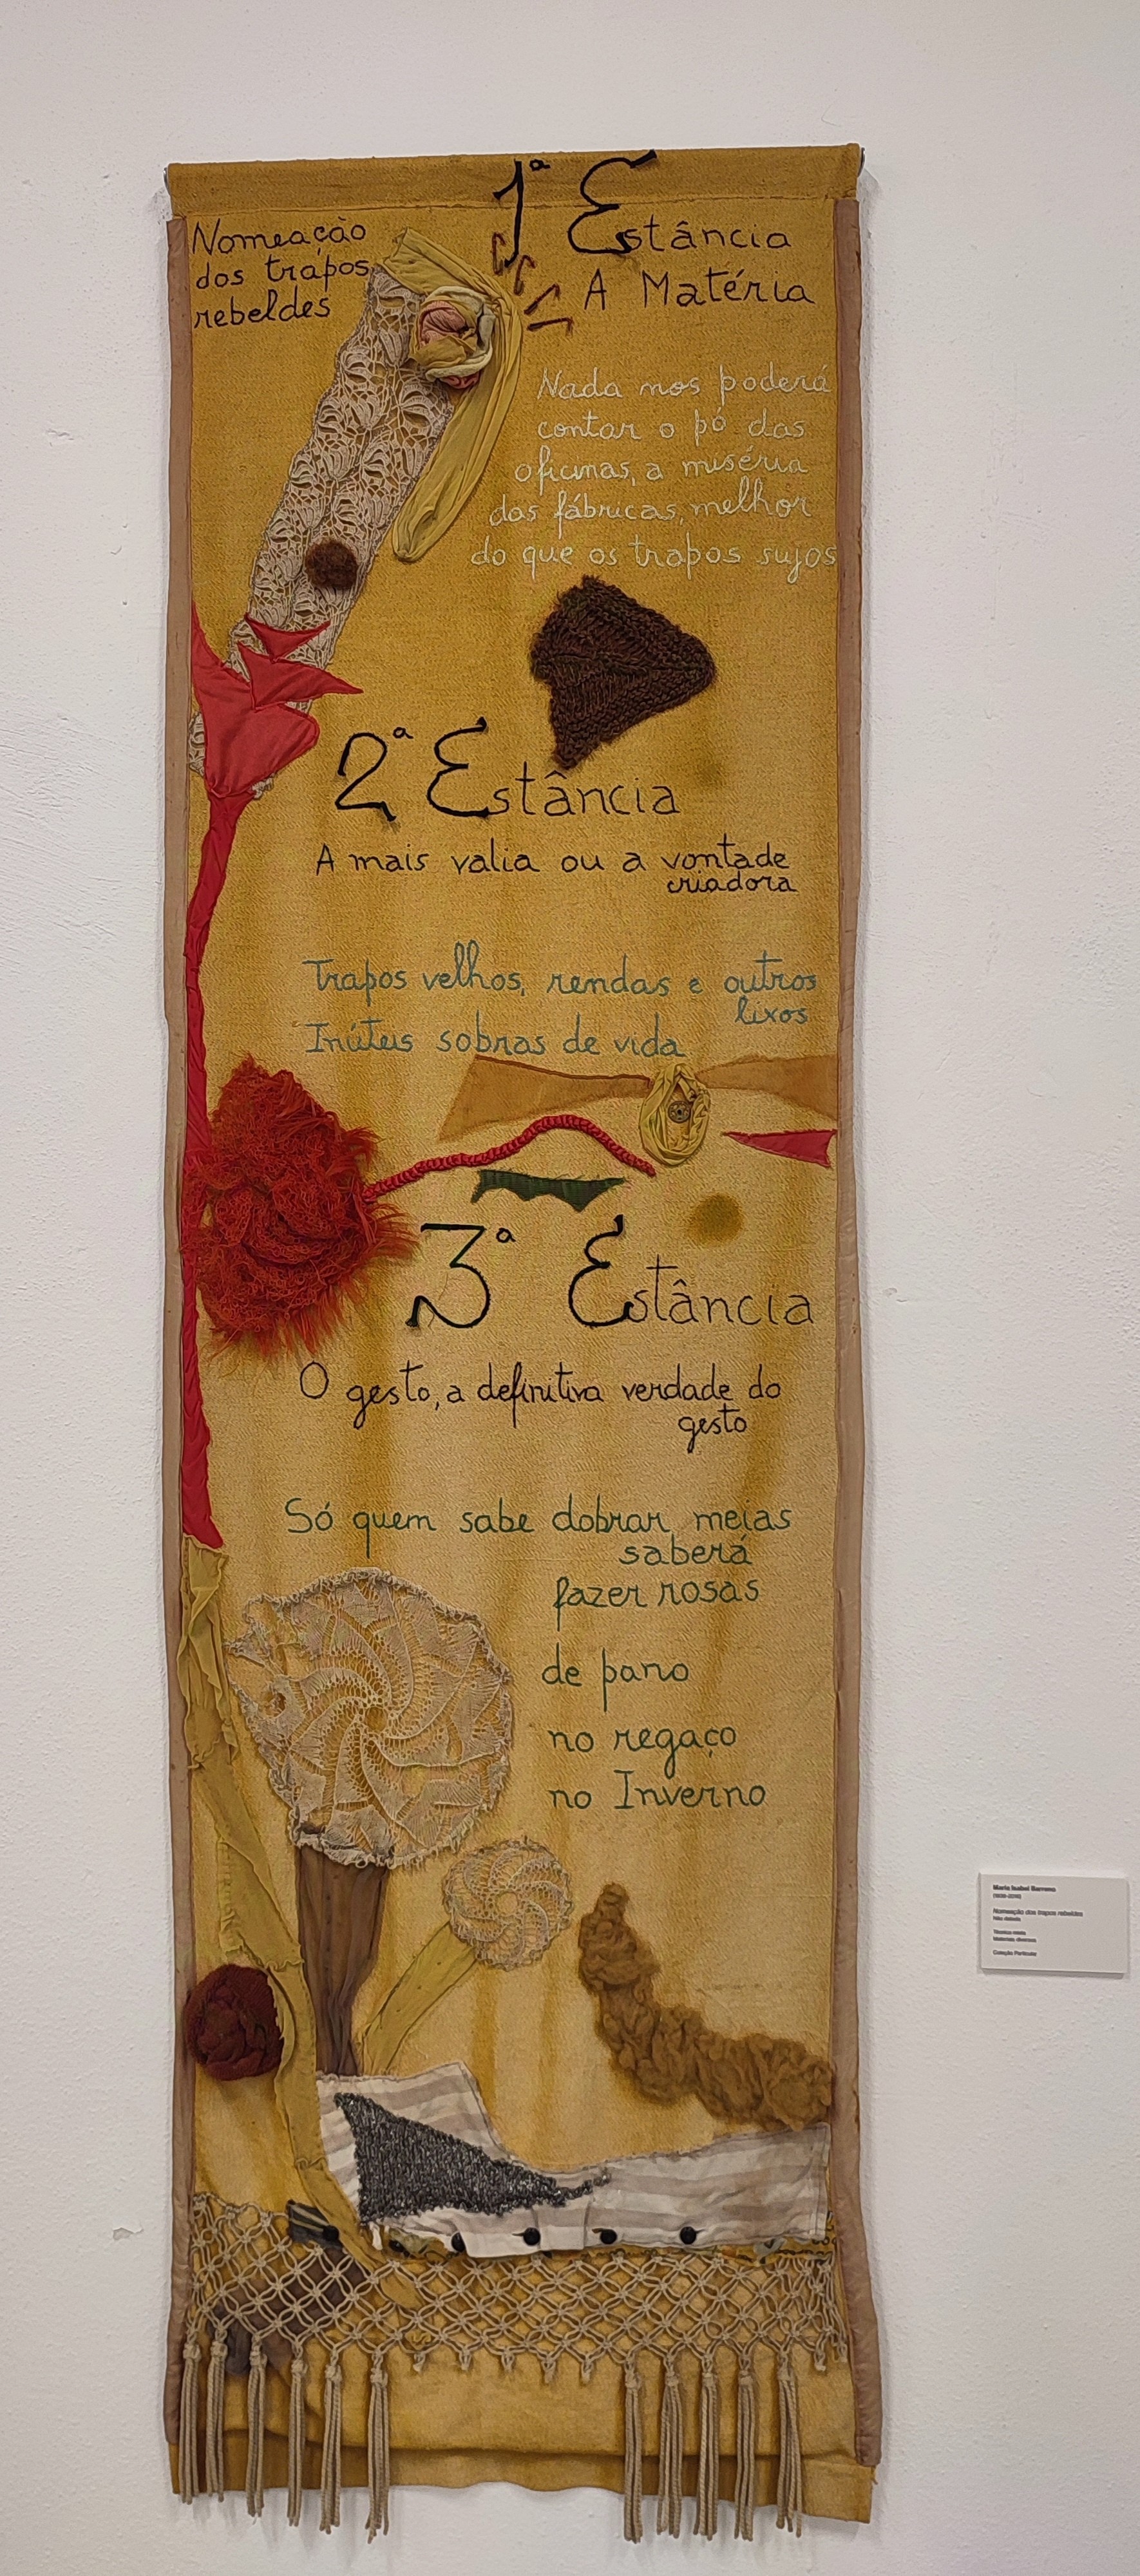 Nomeação
dos trapos
rebeldes
1ª Estância
A Matéria
Nada nos poderá
contar o pó das
oficinas, a miséria
das fábricas, melhor
do que os trapos sujos
2ª Estância
A mais valia ou a vontade
criadora
Trapos velhos, rendas e outros
lixos
Inúteis sobras de vida
3ª Estância
O gesto, a definitiva verdade do
gesto
Só quem sabe dobrar meias
saberá
fazer rosas
de pano
no regaço
no Inverno
Maria Isabel Barreno
Nomeação dos trapos rebeldes
Não datada
Técnica mista
Materiais diversos
Coleção Particular